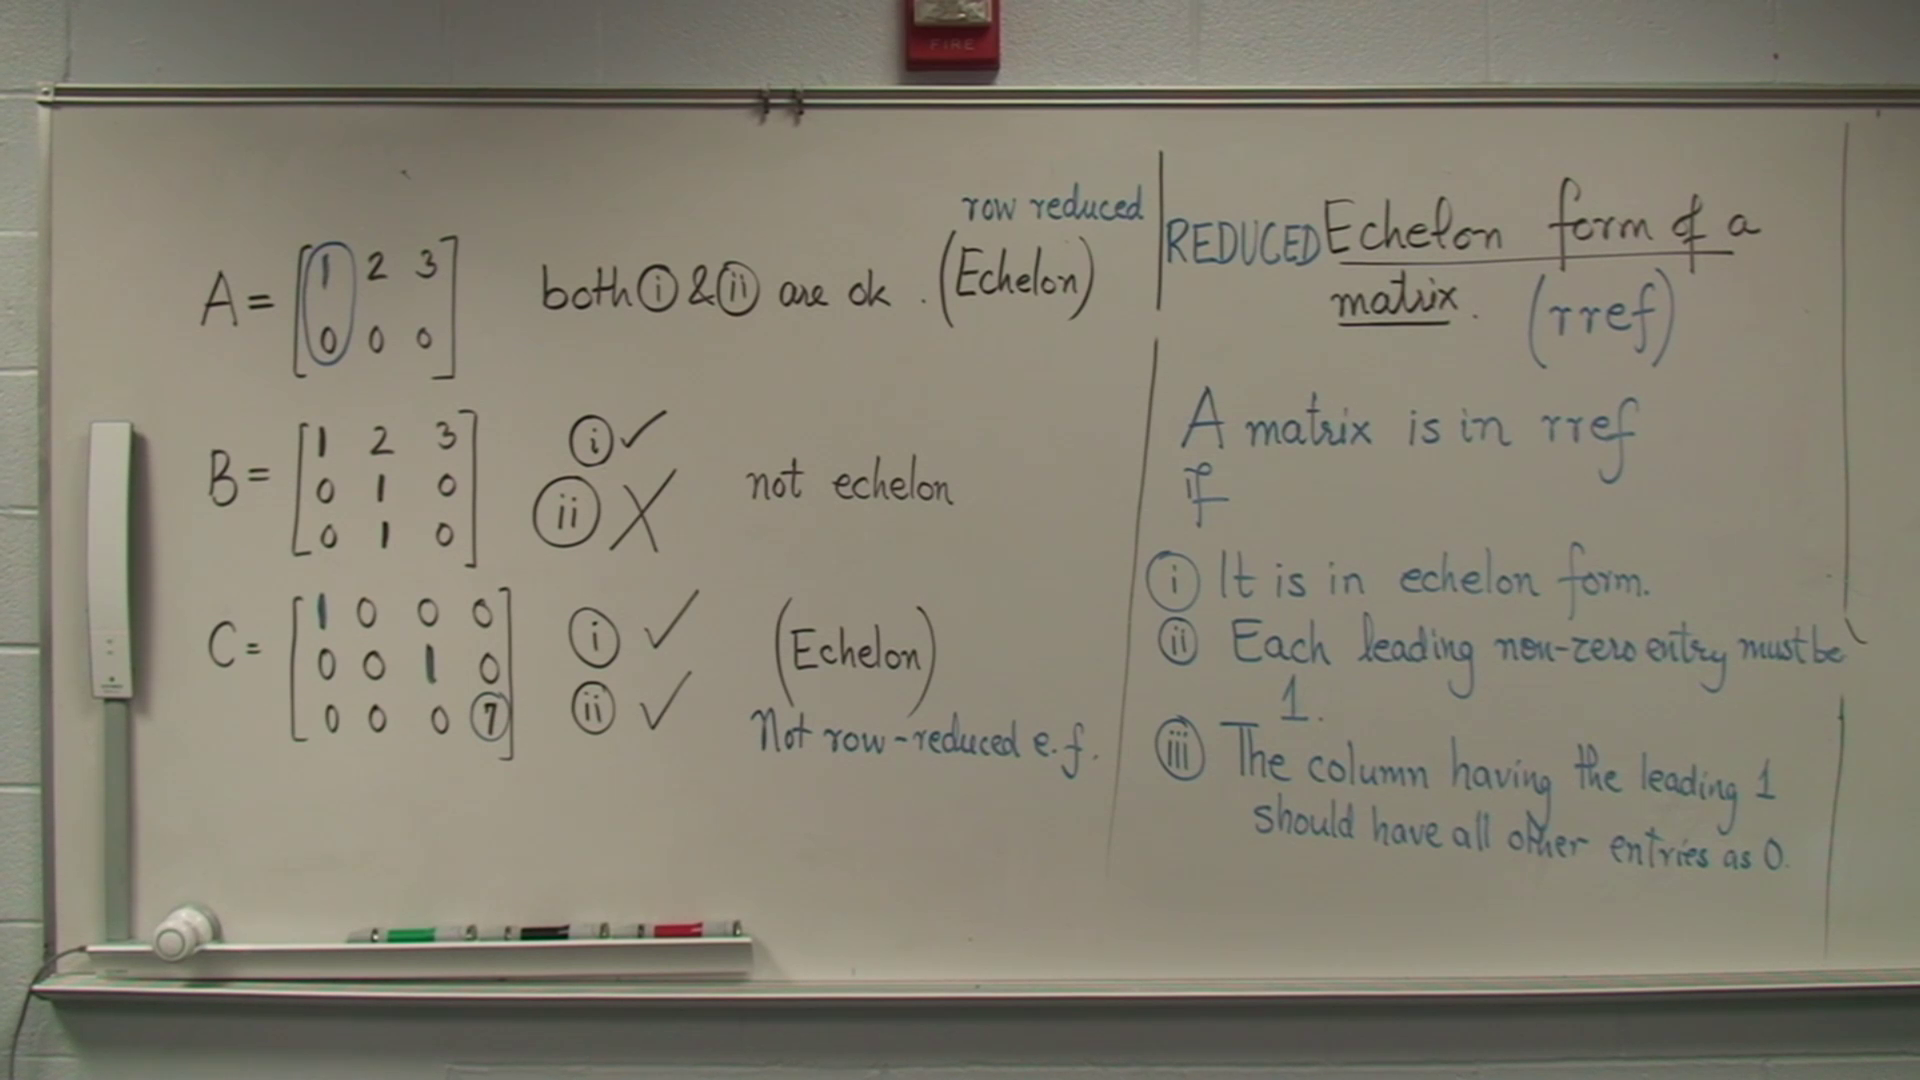 FIRE
row reduced
A = [1 2 3
0 0 0]
both (i) & (ii) are ok. (Echelon)
B = [1 2 3
0 1 0
0 1 0]
(i) ✓
(ii) X
not echelon
C = [1 0 0 0
0 0 1 0
0 0 0 7]
(i) ✓
(ii) ✓
(Echelon)
Not row-reduced e.f.
REDUCED Echelon form of a
matrix. (rref)
A matrix is in rref
if
(i) It is in echelon form.
(ii) Each leading non-zero entry must be
1.
(iii) The column having the leading 1
should have all other entries as 0.